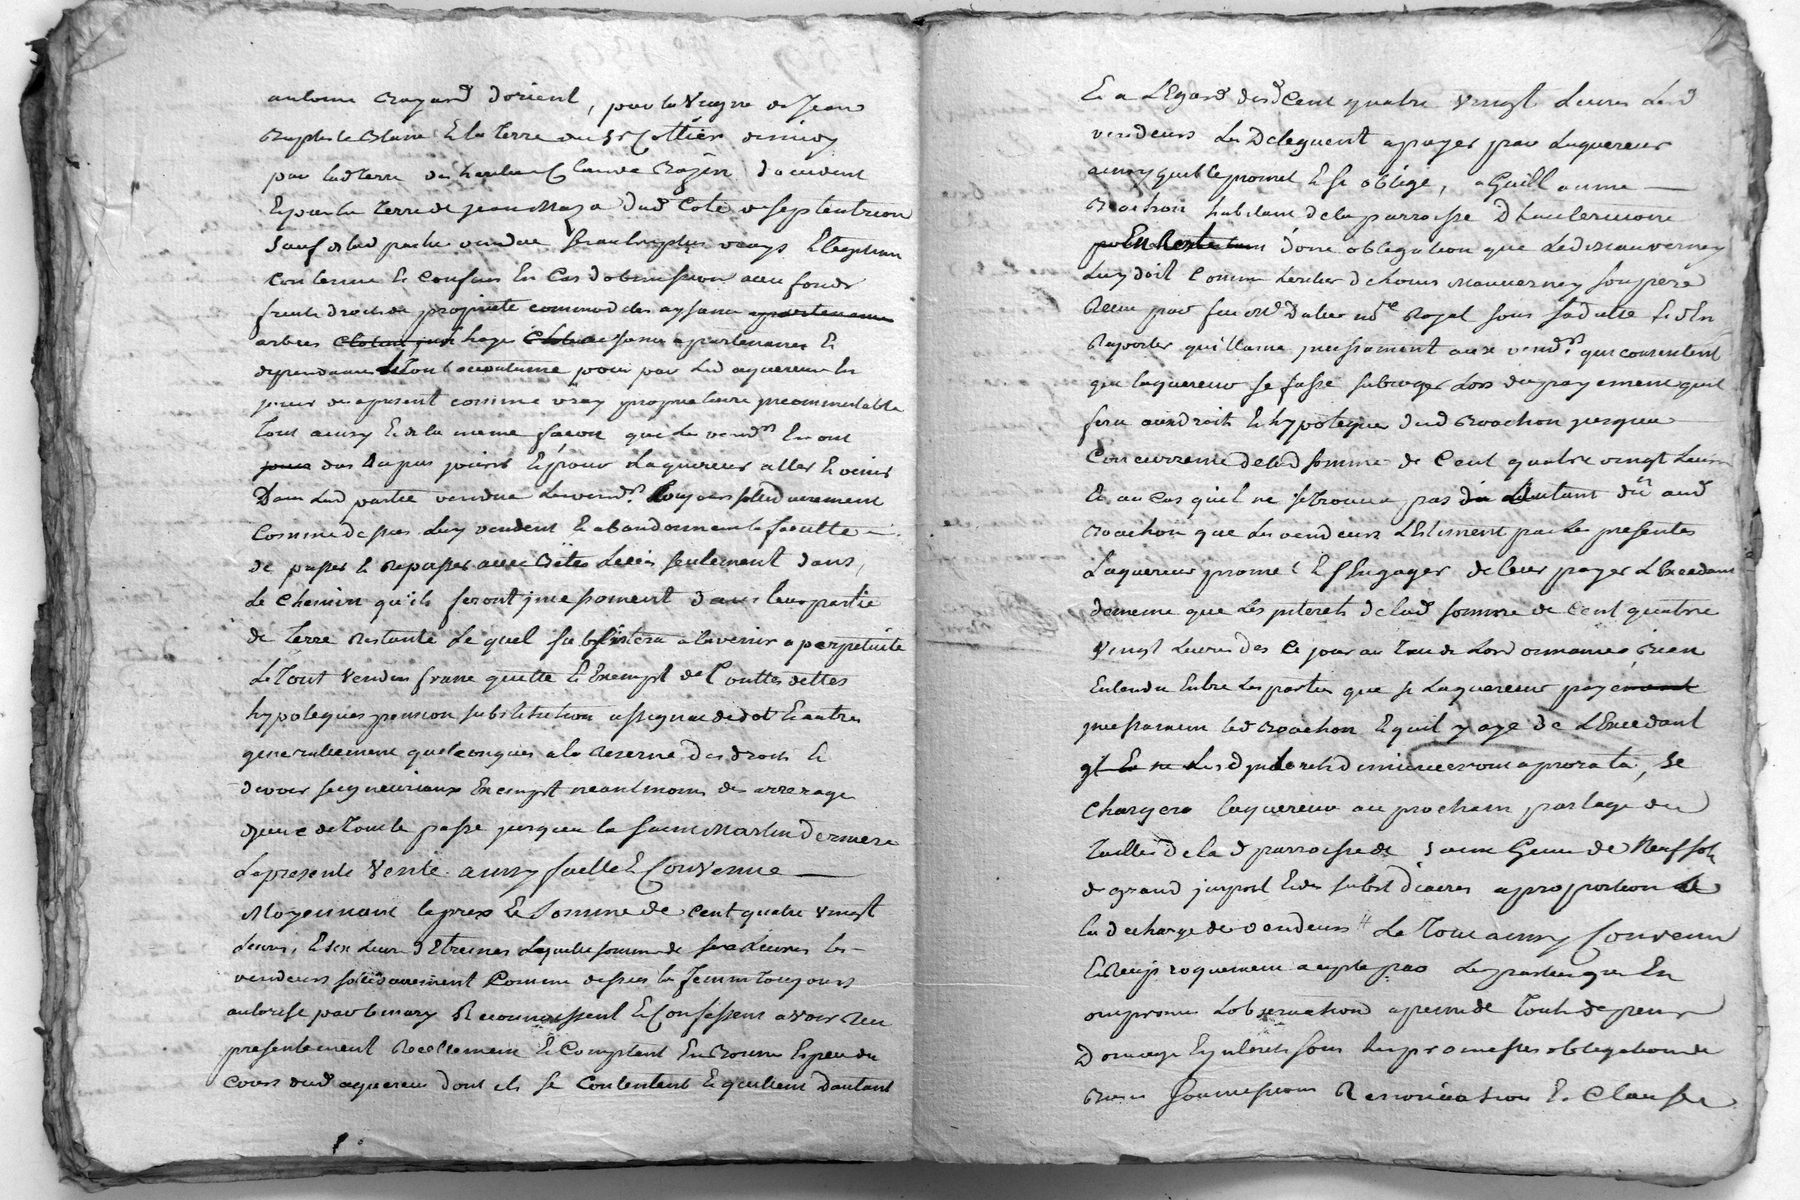 antoine Bayard d'orient, par la vigne de Jean
Baptiste Blanc Et la terre du Sr Cottier de midy
par lad terre Claude Bozin d'occident
Et par la terre de jean Maza dud Coté de septentrion
sauf de lad partie vendue ses autres plus vrays
Contenue Et Confins En Cas d'obmission avec fonds
fruits droits de proprieté commodités aysance apartenance
arbres haye apartenances Et
dependances Et tout accoutumé pour par Led aquereur En
jouir du apresent comme vray proprietaire incommutable
tout ainsy Et de la meme façon que Les vendrs En ont
deu du puis jouir Et pour Laquereur aller Et venir
Dans Lad partie vendue Les vendrs toujours solidairement
Comme dessus Luy vendent Et abandonnent la faculté
de passer Et Repasser avec Bêtes Liées seulement dans
Le Chemin qu'ils feront incessament dans leur partie
de terre Restante Le quel subsistera a l'avenir a perpetuité
Le Tout vendu franc quitte Et Exempt de Touttes dettes
hypoteques pension substitution assignas de dot Et autres
generallement quelconques a la Reserve des droits Et
devoir seigneuriaux Exempt neantmoins de arrerage
d'yceux de tout le passé jusques la saint Martin derniere
La presente Vente ainsy faitte Et Convenue
Moyennant le prix Et Somme de Cent quatre vingt
Livres, Et six Livres d'Etrennes Laquelle somme de six Livres les
vendeurs solidairement Comme dessus la femme toujours
autorisé par le mary Reconnoissent Et Confessent avoir Receu
presentement Reellement Et Comptant En Bonne Espece du
Cours dud aquereur dont ils se Contentent Et quittent D'autant
Et a L'Egard desd Cent quatre vingt Livres Lesd
vendeurs Les Deleguent a payer par Laquereur
ainsy quil le promet Et s'y oblige, a Guillaume
Rochon habitant de la parroisse D
d'une obligation que Led Mauverney
Luy doit Comme heritier de Louis Mauverney son pere
Receu par feu Me Dalier nore Royal sous sa datte
Raporter quittance incessament aux vendrs qui consentent
que Laquereur se fasse subroger Lors du payement quil
fera aux droits Et hypoteques dud Roachon jusqua
Concurrence de lad somme de Cent quatre vingt Livres
Et au cas quil ne se trouva pas Autant dû aud
Roachon que Les vendeurs L'Estiment par Les presentes
Laquereur promet Et s'Engager de leur payer L'Excedant
de meme que Les interets de lad somme de Cent quatre
vingt Livres des Ce jour au Taux de Lordonnance, Bien
Entendu Entre Les parties que si Laquereur paye
incessament led Roachon Et quil y aye de L'Excedant
Lesd interets diminueront a prorata, se
chargera laquereur au prochain partage des
Tailles de la d parroisse de Saint de Neuf sols
de grand impost Et des subsidiaires a proportion a
la decharge des vendeurs Le Tout ainsy Convenu
Et Reciproquement accepté par Les parties qui En
ont promis Lobservation a peine de Touts depens
Domage Et interets sous Les promesses obligation de
Biens soumissions Renonciation Et Clauses